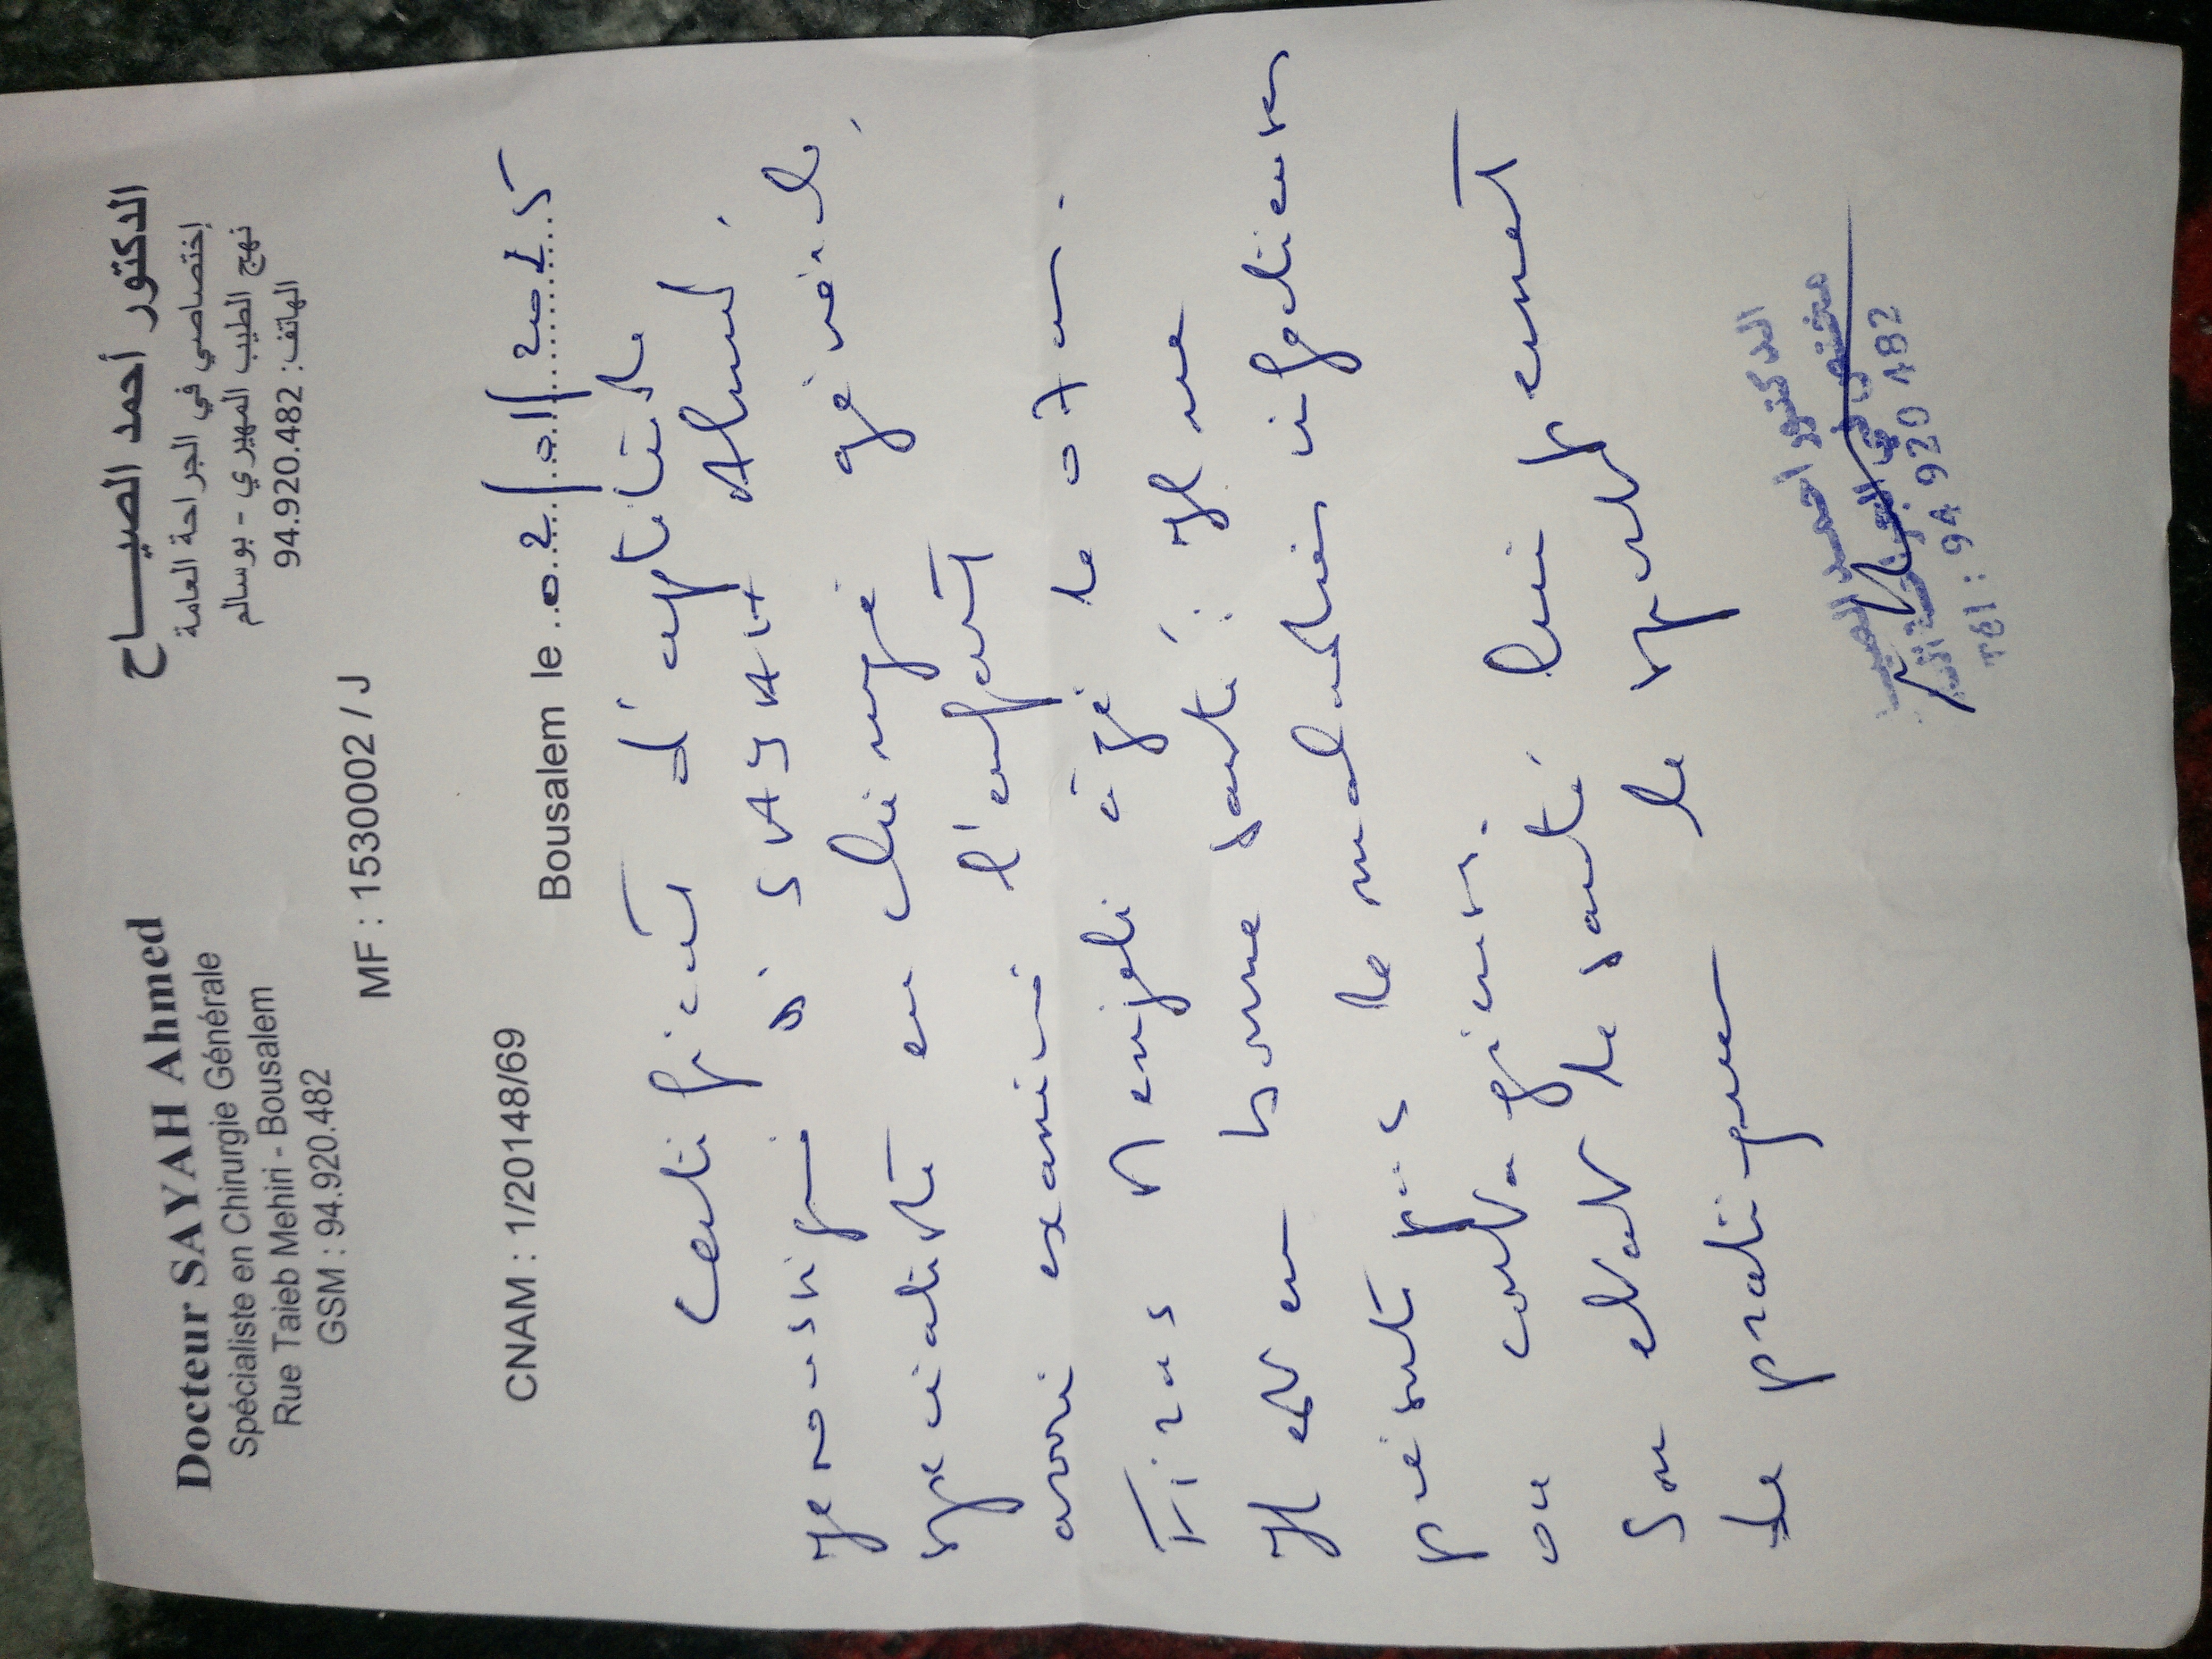 Docteur SAYAH Ahmed
Spécialiste en Chirurgie Générale
Rue Taieb Mehiri - Bousalem
GSM : 94.920.482
الدكتور أحمد الصيـــاح
إختصاصي في الجراحة العامة
نهج الطيب المهيري - بوسالم
الهاتف: 94.920.482
MF : 1530002 / J
CNAM : 1/20148/69
Bousalem le 02/01/2025
Certificat d'aptitude
Je soussigné Dr SAYAH Ahmed,
spécialiste en chirurgie générale,
avoir examiné l'enfant
Firas âgé de 07 ans.
Il est en bonne santé. Il ne
présente pas de maladies infectieuses
ou contagieuses.
Son état de santé lui permet
de pratiquer le sport
الدكتور احمد الصياح
Tél : 94 920 482